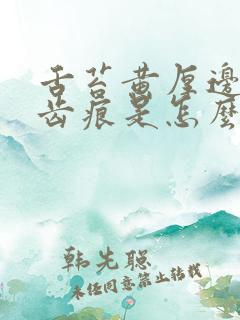 舌苔黄厚邊
齿痕是怎麼
韩先聪
未经同意禁止转载